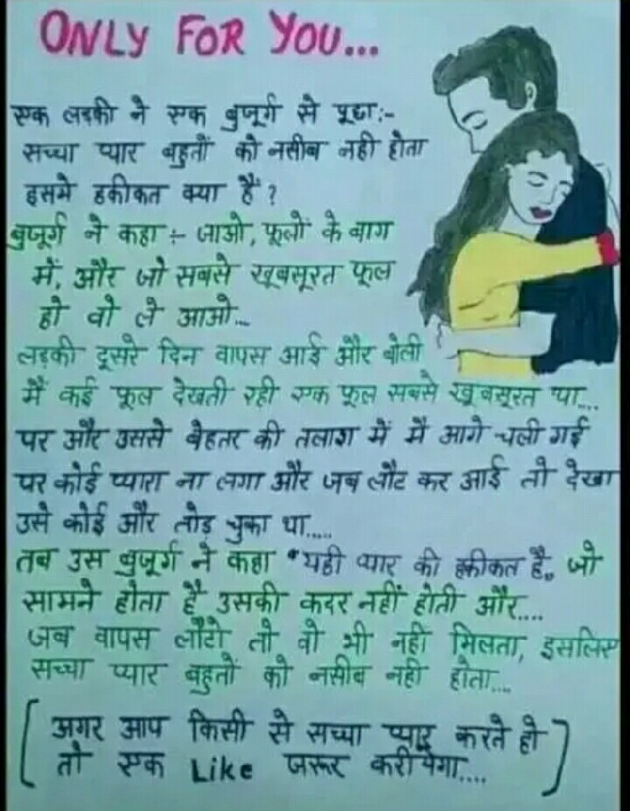 ONLY FOR YOU...
एक लडकी ने एक बुजूर्ग से पूछा:-
सच्चा प्यार बहुतों को नसीब नही होता
इसमे हकीकत क्या हैं ?
बुजूर्ग ने कहा :- जाओ, फूलों के बाग
में, और जो सबसे खूबसूरत फूल
हो वो ले आओ...
लडकी दूसरे दिन वापस आई और बोली
मैं कई फूल देखती रही एक फूल सबसे खूबसूरत था...
पर और उससे बेहतर की तलाश में मैं आगे चली गई
पर कोई प्यारा ना लगा और जब लौट कर आई तो देखा
उसे कोई और तोड़ चुका था.....
तब उस बुजूर्ग ने कहा "यही प्यार की हकीकत है" जो
सामने होता है उसकी कदर नहीं होती और....
जब वापस लौटो तो वो भी नही मिलता, इसलिए
सच्चा प्यार बहुतो को नसीब नही होता....
[अगर आप किसी से सच्चा प्यार करते हो
तो एक Like जरूर करीयेगा....]